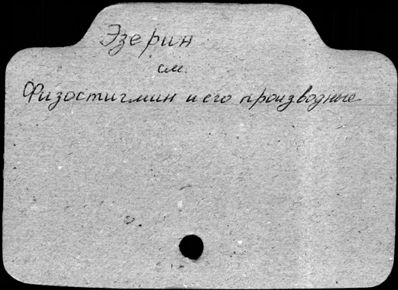 Эзерин
см.
Физостигмин и его производные